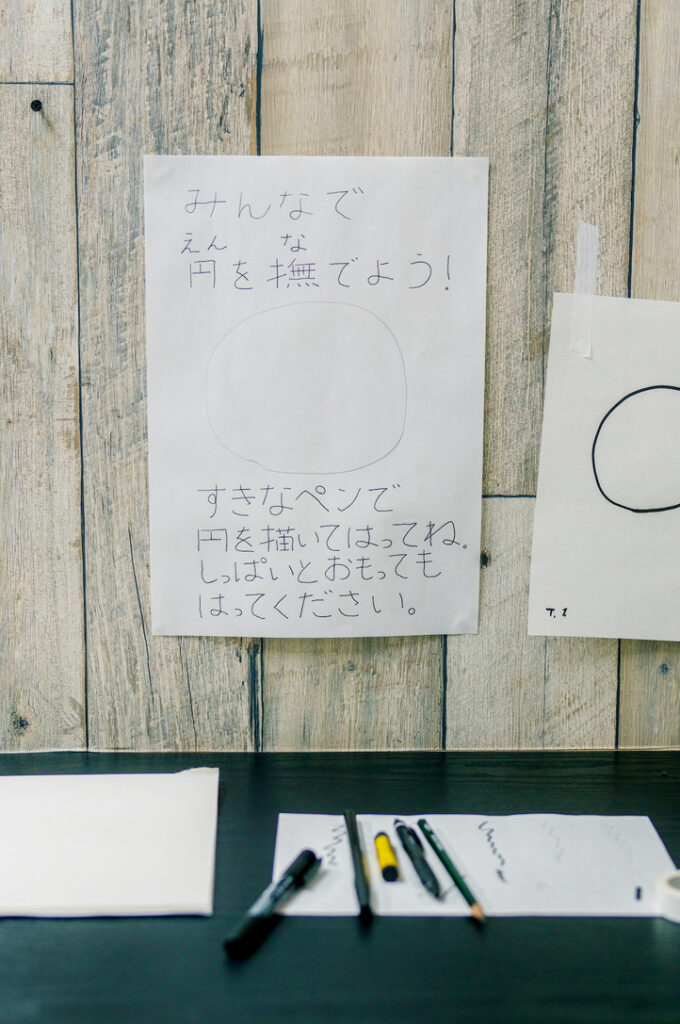 みんなで
えん な
円を撫でよう!
すきなペンで
円を描いてはってね。
しっぱいとおもっても
はってください。
T. I